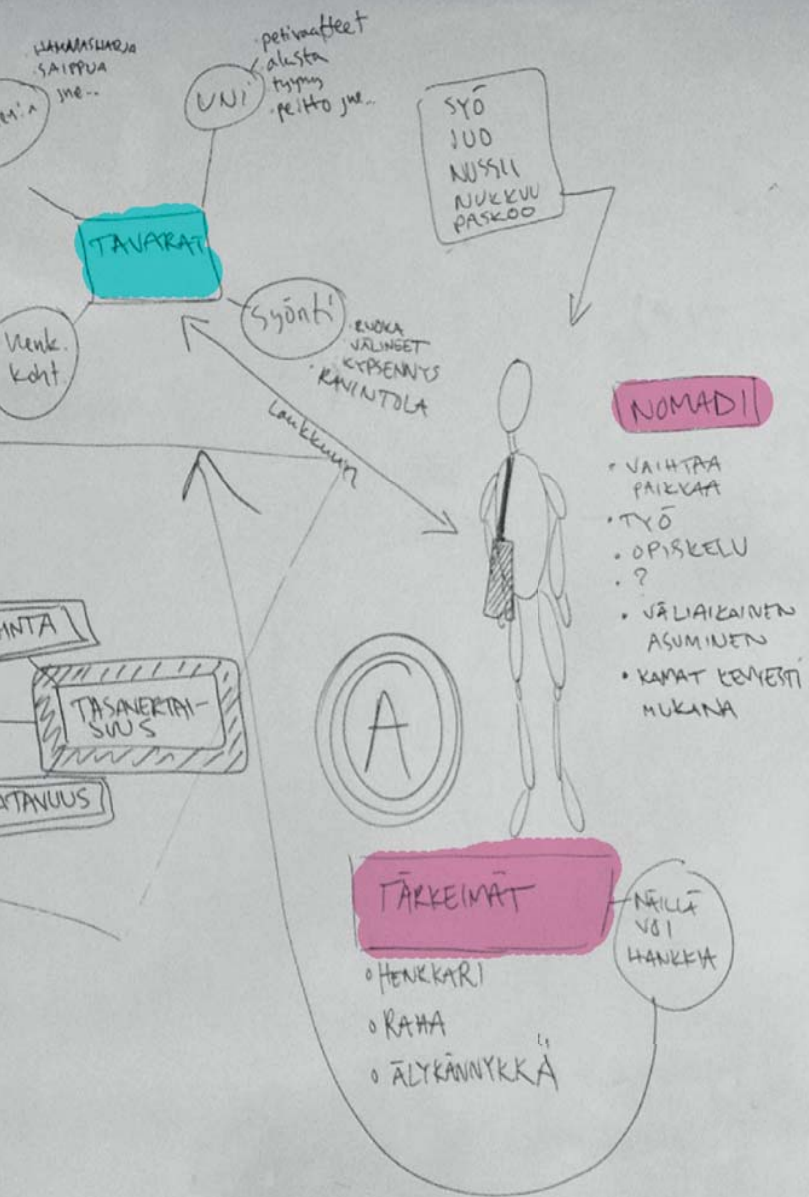 HAMMASHARJA
SAIPPUA
jne..
UNI
· petivaatteet
· alusta
tyyny
· peitto jne..
SYÖ
JUO
NUSSII
NUKKUU
PASKOO
TAVARAT
Henk.
koht.
Syönti
· RUOKA
VÄLINEET
KYPSENNYS
· RAVINTOLA
Laukkuun
NOMADI
· VAIHTAA
PAIKKAA
· TYÖ
· OPISKELU
· ?
· VÄLIAIKAINEN
ASUMINEN
· KAMAT KEVYESTI
MUKANA
TASAVERTAI-
SUUS
ATAVUUS
A
TÄRKEIMÄT
NÄILLÄ
VOI
HANKKIA
· HENKKARI
· RAHA
· ÄLYKÄNNYKKÄ